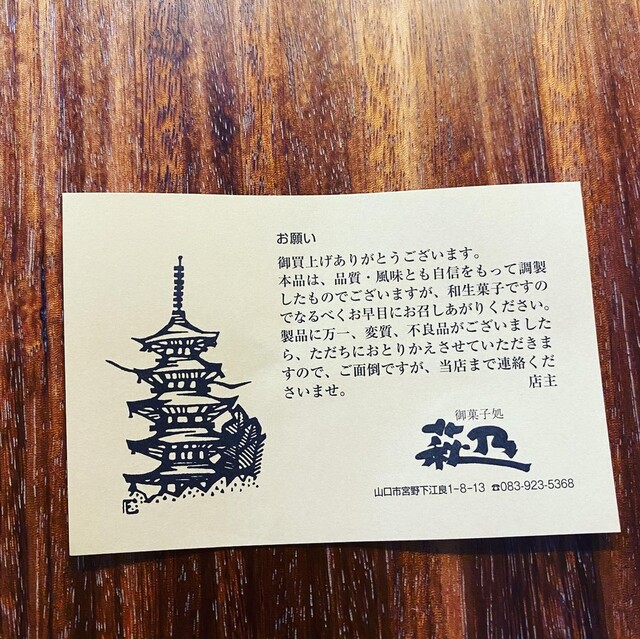 お願い
御買上げありがとうございます。
本品は、品質・風味とも自信をもって調製
したものでございますが、和生菓子ですの
でなるべくお早目にお召しあがりください。
製品に万一、変質、不良品がございました
ら、ただちにおとりかえさせていただきま
すので、ご面倒ですが、当店まで連絡くだ
さいませ。 店主
御菓子処
山口市宮野下江良1-8-13 ☎083-923-5368